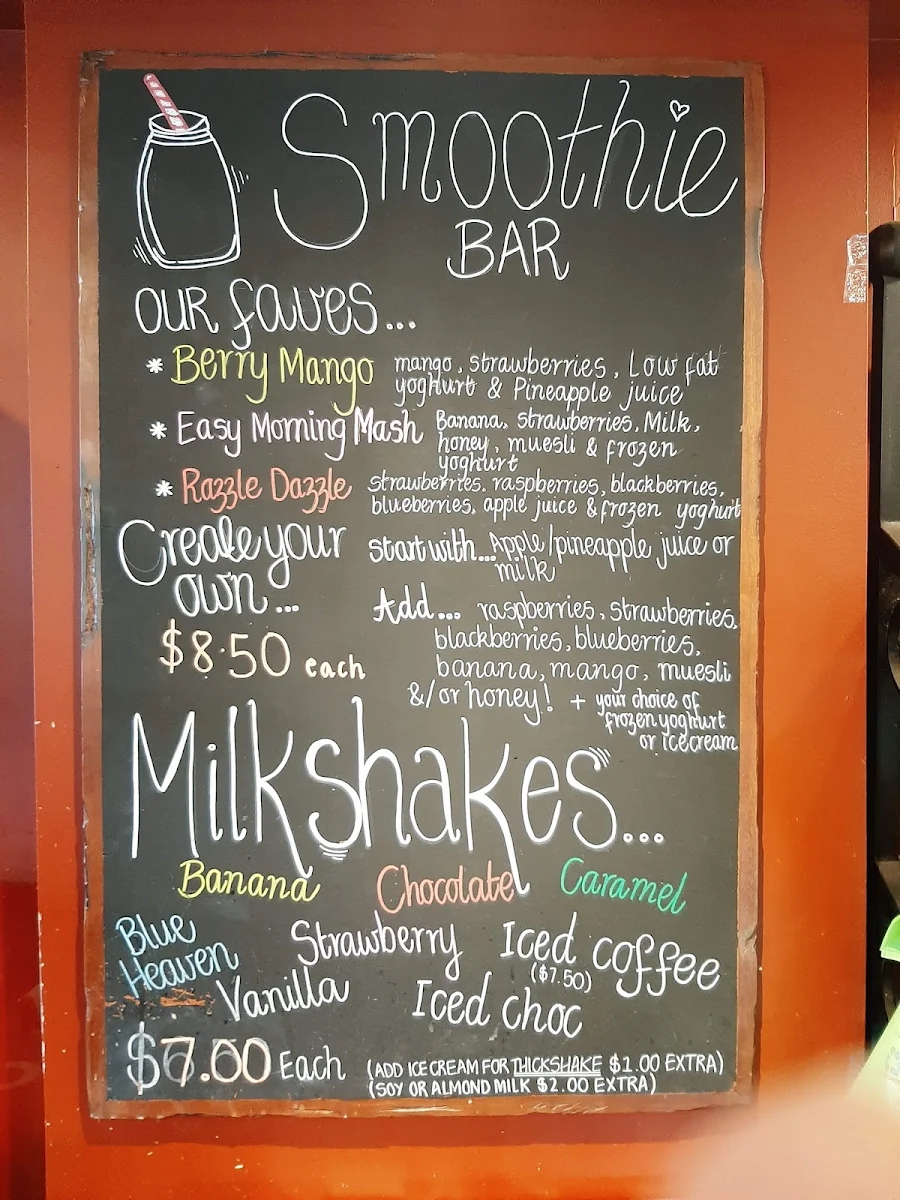 Smoothie
BAR
our faves...
* Berry Mango mango, strawberries, Low fat
yoghurt & Pineapple juice
* Easy Morning Mash Banana, strawberries, Milk,
honey, muesli & frozen
yoghurt
* Razzle Dazzle strawberries, raspberries, blackberries,
blueberries, apple juice & frozen yoghurt
Create your
own...
$8.50 each
start with... Apple/pineapple juice or
milk
Add... raspberries, strawberries,
blackberries, blueberries,
banana, mango, muesli
&/or honey! + your choice of
frozen yoghurt
or icecream
Milkshakes...
Banana Chocolate Caramel
Blue
Heaven
Strawberry Iced coffee
($7.50)
Vanilla Iced choc
$7.00 Each (ADD ICE CREAM FOR THICKSHAKE $1.00 EXTRA)
(SOY OR ALMOND MILK $2.00 EXTRA)